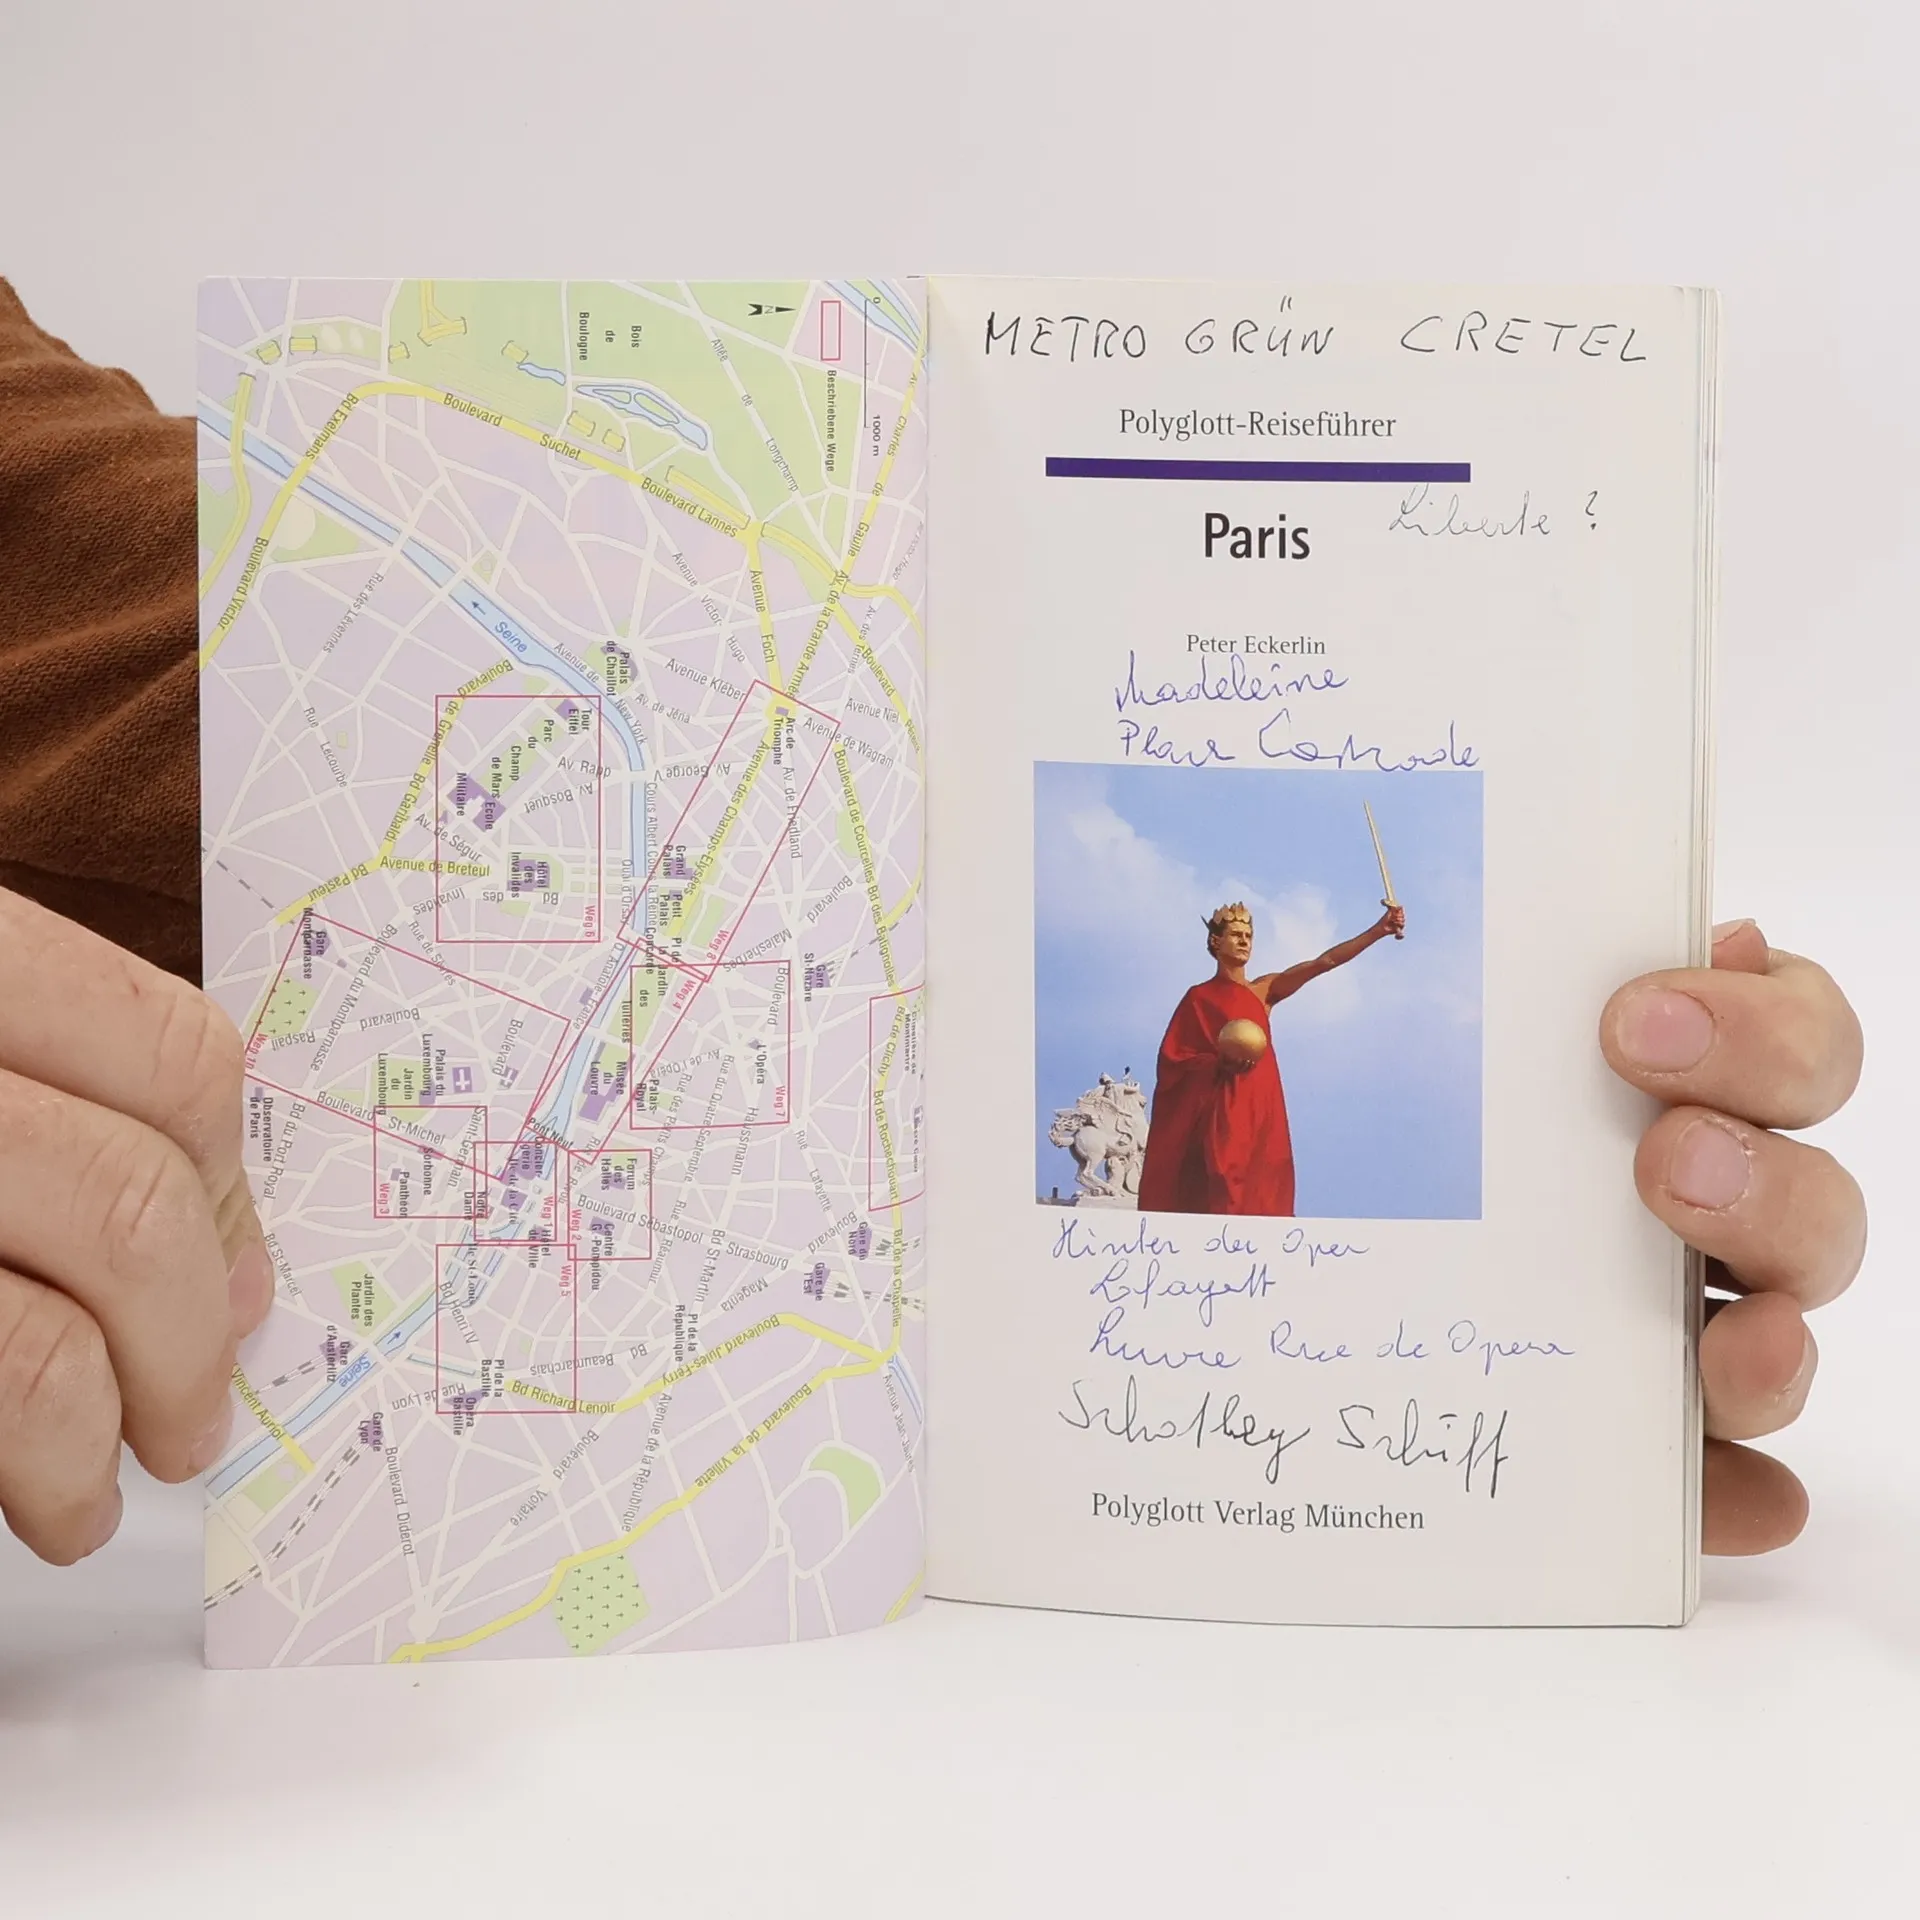 Bois
de
Boulogne
Allée
de
Longchamp
N
0
1000 m
Beschriebene Wege
Bd Exelmans
Boulevard
Suchet
Boulevard Lannes
Charles
de
Gaulle
Av. de la Grande Armée
Boulevard Victor
Rue
Lecourbe
Seine
Avenue de
New York
Palais
de Chaillot
Avenue
Victor-
Hugo
Avenue
Foch
Avenue Kléber
Av. de Jéna
Avenue Niel
Avenue de Wagram
Av. des Ternes
Boulevard
Arc de
Triomphe
Boulevard
de Grenelle
Bd Garibaldi
Bd Pasteur
Tour
Eiffel
Parc
du
Champ
de Mars
Ecole
Militaire
Av. Rapp
Av. Bosquet
Av. de Ségur
Avenue de Breteuil
Hôtel
des
Invalides
Bd
des
Invalides
Weg 6
Av. George V
Avenue des Champs-Elysées
Av. de Friedland
Boulevard de Courcelles
Bd des Batignolles
Grand
Palais
Petit
Palais
Pl de
la
Concorde
Weg 8
Boulevard
Malesherbes
Gare
St-Nazare
Gare
Montparnasse
Boulevard du Montparnasse
Rue de Sèvres
Boulevard
Raspail
Weg 10
Jardin
des
Tuileries
Weg 4
Musée
du
Louvre
Palais-
Royal
Boulevard
L'Opéra
Weg 7
Av. de l'Opéra
Rue des Petits Champs
Rue du Quatre Septembre
Haussmann
Rue
Lafayette
Bd de Clichy
Bd de Rochechouart
Bd de la Chapelle
Palais du
Luxembourg
Jardin
du
Luxembourg
Observatoire
de Paris
Bd du Port Royal
Boulevard
St-Michel
Saint-Germain
Sorbonne
Panthéon
Weg 3
Pont Neuf
Notre
Dame
Weg 1
Hôtel
de Ville
Weg 2
Forum
des
Halles
Centre
G.-Pompidou
Boulevard Sébastopol
Rue
Réaumur
Bd St-Martin
Strasbourg
Boulevard
Magenta
Gare du
Nord
Gare de
l'Est
Bd St-Marcel
Jardin des
Plantes
Gare
d'Austerlitz
Seine
Bd Henri IV
Weg 5
Pl de la
Bastille
Opéra
Bastille
Bd
Beaumarchais
Bd Richard Lenoir
Pl de la
République
Boulevard Jules-Ferry
Avenue de la République
Boulevard
Voltaire
Boulevard de la Villette
Rue de Lyon
Gare de
Lyon
Boulevard Diderot
Vincent Auriol
METRO GRÜN CRETEL
Polyglott-Reiseführer
Paris
Liberte ?
Peter Eckerlin
Madeleine
Place
Hinter der Oper
Lafayett
Luvre Rue de Opera
Polyglott Verlag München